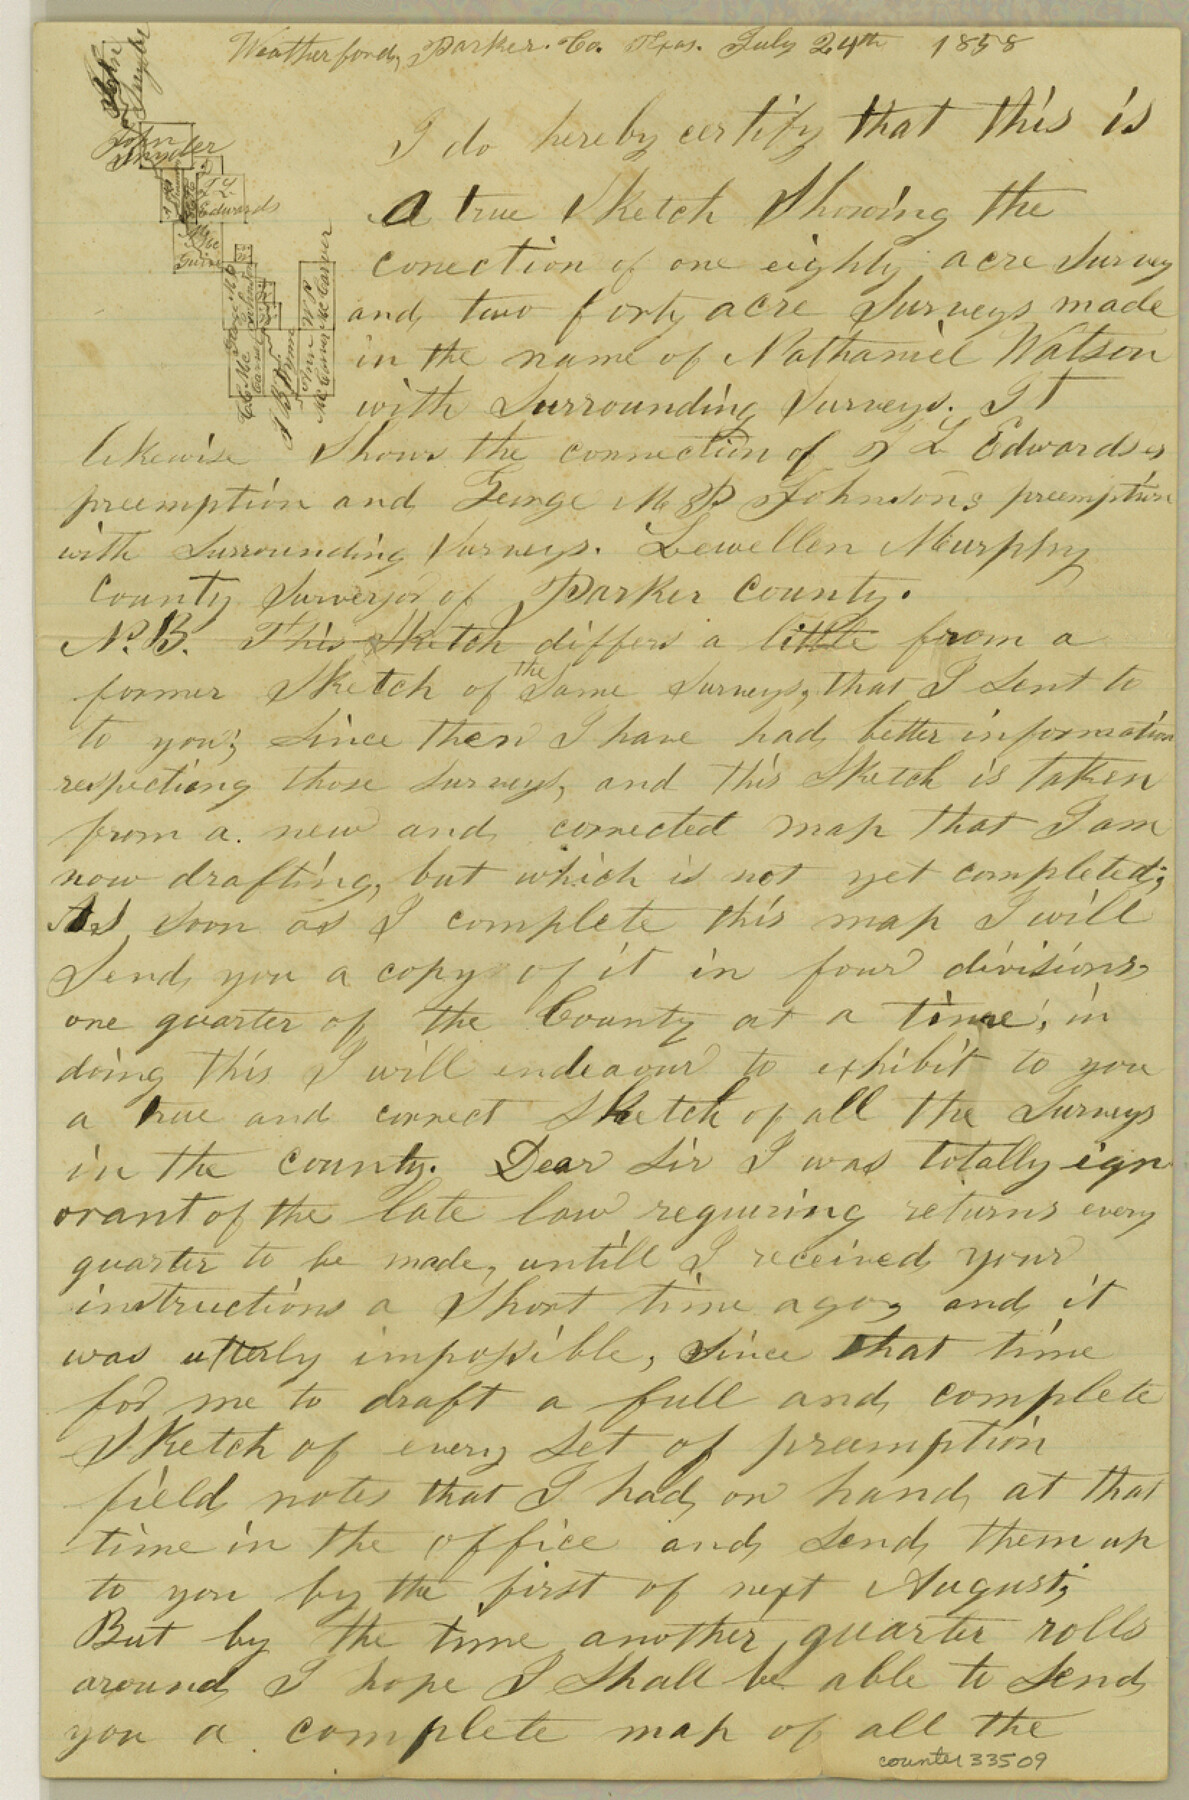 Weatherford, Parker. Co. Texas. July 24th 1858
John Snyder
John
Snyder
T L
Edwards
Mc
Guire
I do hereby certify that this is
a true Sketch Showing the
conection of one eighty acre Survey
and two forty acre Surveys made
in the name of Nathaniel Watson
with Surrounding Surveys. It
likewise Shows the connection of T L Edwardses
preemption and George McP Johnsons preemption
with Surrounding Surveys. Lewellen Murphy
County Surveyor of Parker County.
N.B. This Sketch differs a little from a
former Sketch of the Same Surveys, that I Sent to
to you; Since then I have had better information
respecting those Surveys, and this Sketch is taken
from a. new and corrected map that I am
now drafting, but which is not yet completed;
As Soon as I complete this map I will
Send you a copy of it in four divisions,
one quarter of the County at a time; in
doing this I will endeavour to exhibit to you
a true and correct Sketch of all the Surveys
in the county. Dear Sir I was totally ign
orant of the late law requiring returns every
quarter to be made, untill I received your
instructions a Short time ago, and it
was utterly impossible, Since that time
for me to draft a full and complete
Sketch of every Set of preemption
field notes that I had on hand at that
time in the office and Send them up
to you by the first of next August;
But by the time another quarter rolls
around I hope I Shall be able to Send
you a complete map of all the
counter 33509